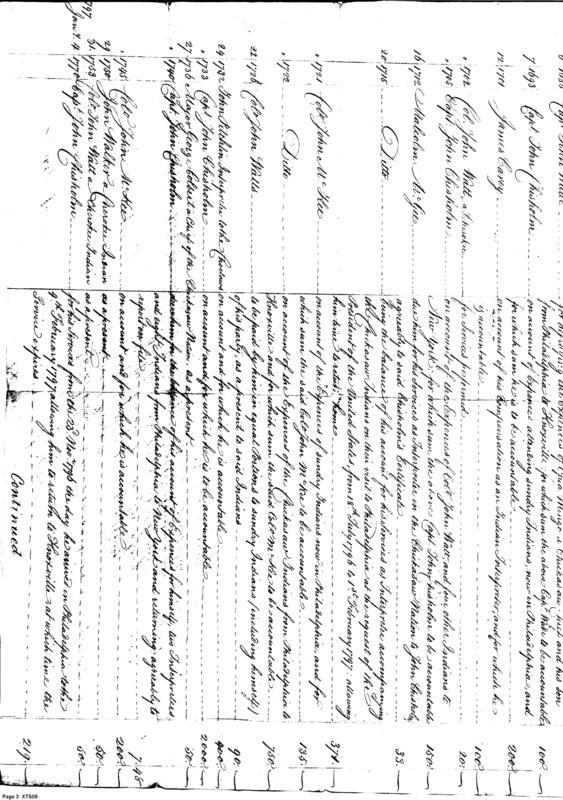 for defraying the expences of Opia Mingo a Chickasaw and his son
from Philadelphia to Knoxville for which sum the above Capt. is to be accountable 100
7 1693 Capt. John Chisholm on account of expences attending sundry Indians, now in Philadelphia and
for which sum he is to be accountable 200
12 1701 James Carey on account of his compensation as an Indian Interpreter, and for which he
is accountable 100
1702 Col. John Watts, a for services performed 20
1705 Capt. John Chisholm on account of the expences of Colo. John Watts and four other Indians to
New York, for which sum the above Capt. Chisholm to be accountable 150
16 1712 Malcolm McGee due him for his services as Interpreter in the Chickasaw Nation to John Chisholm
agreeably to said Chisholm's Certificate 33
20 1716 Ditto being the balance of his account for his services as Interpreter accompanying
the Chickasaw Indians on their visit to Philadelphia at the request of the
President of the United States from 18th July 1796 to 1st February 1797, allowing
him time to return home 371
1721 Colo. John McKee on account of the expences of sundry Indians now in Philadelphia and for
which sum the said Colo. John McKee to be accountable 135
1722 Ditto on account of the expences of the Chickasaw Indians from Philadelphia to
Knoxville and for which sum the said Colo. McKee to be accountable 750
22 1726 Colo. John Watts to be paid by him in equal Portions to sundry Indians (including himself)
of his party, as a present to said Indians 90
24 1732 John Interpreter to the on account and for which he is accountable 400
1733 Capt. John Chisholm on account and for which he is to be accountable 2000
27 1736 Major George Colbert a Chief of the Chickasaw Nation as a present 50
1740 Capt. John Chisholm of his account of Expences for himself, two Interpreters
and eight Indians from Philadelphia to New York and returning agreeably to
report on file 7.45
1745 Colo. John McKee on account and for which he is accountable 200
29 1750 John Walker a Cherokee Indian as a present 50
31 1753 Colo. John Watts a Cherokee Indian as a present 50
1797
Jany. 4 1770 Capt. John Chisholm for his services from the 23d Nov. 1796 the day he arrived in Philadelphia to the
9th February 1797, allowing him to return to Knoxville at which time the
Service expires 219
Continued
Page 3 XTS09